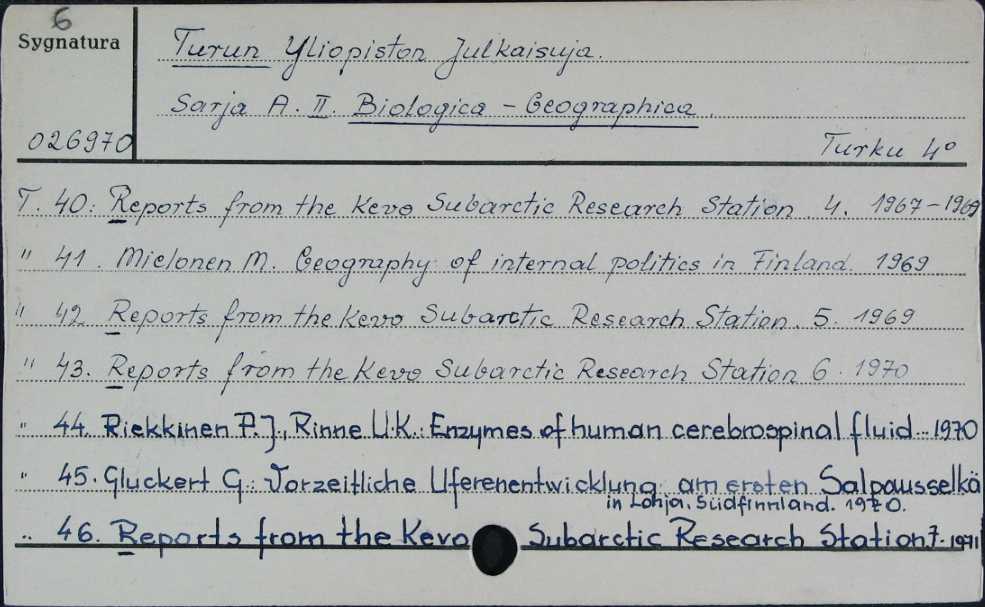 6
Sygnatura
026970
Turun Yliopiston Julkaisuja.
Sarja A. II. Biologica - Geographica.
Turku 4°
T. 40: Reports from the Kevo Subarctic Research Station. 4. 1967-1969
" 41. Mielonen M. Geography of internal politics in Finland. 1969
" 42 Reports from the Kevo Subarctic Research Station. 5. 1969
" 43. Reports from the Kevo Subarctic Research Station 6. 1970
" 44. Riekkinen P.J., Rinne U.K.: Enzymes of human cerebrospinal fluid 1970
" 45. Gluckert G.: Vorzeitliche Uferenentwicklung am ersten Salpausselkä
in Lohja, Südfinnland. 1970.
" 46. Reports from the Kevo Subarctic Research Station 7. 1971